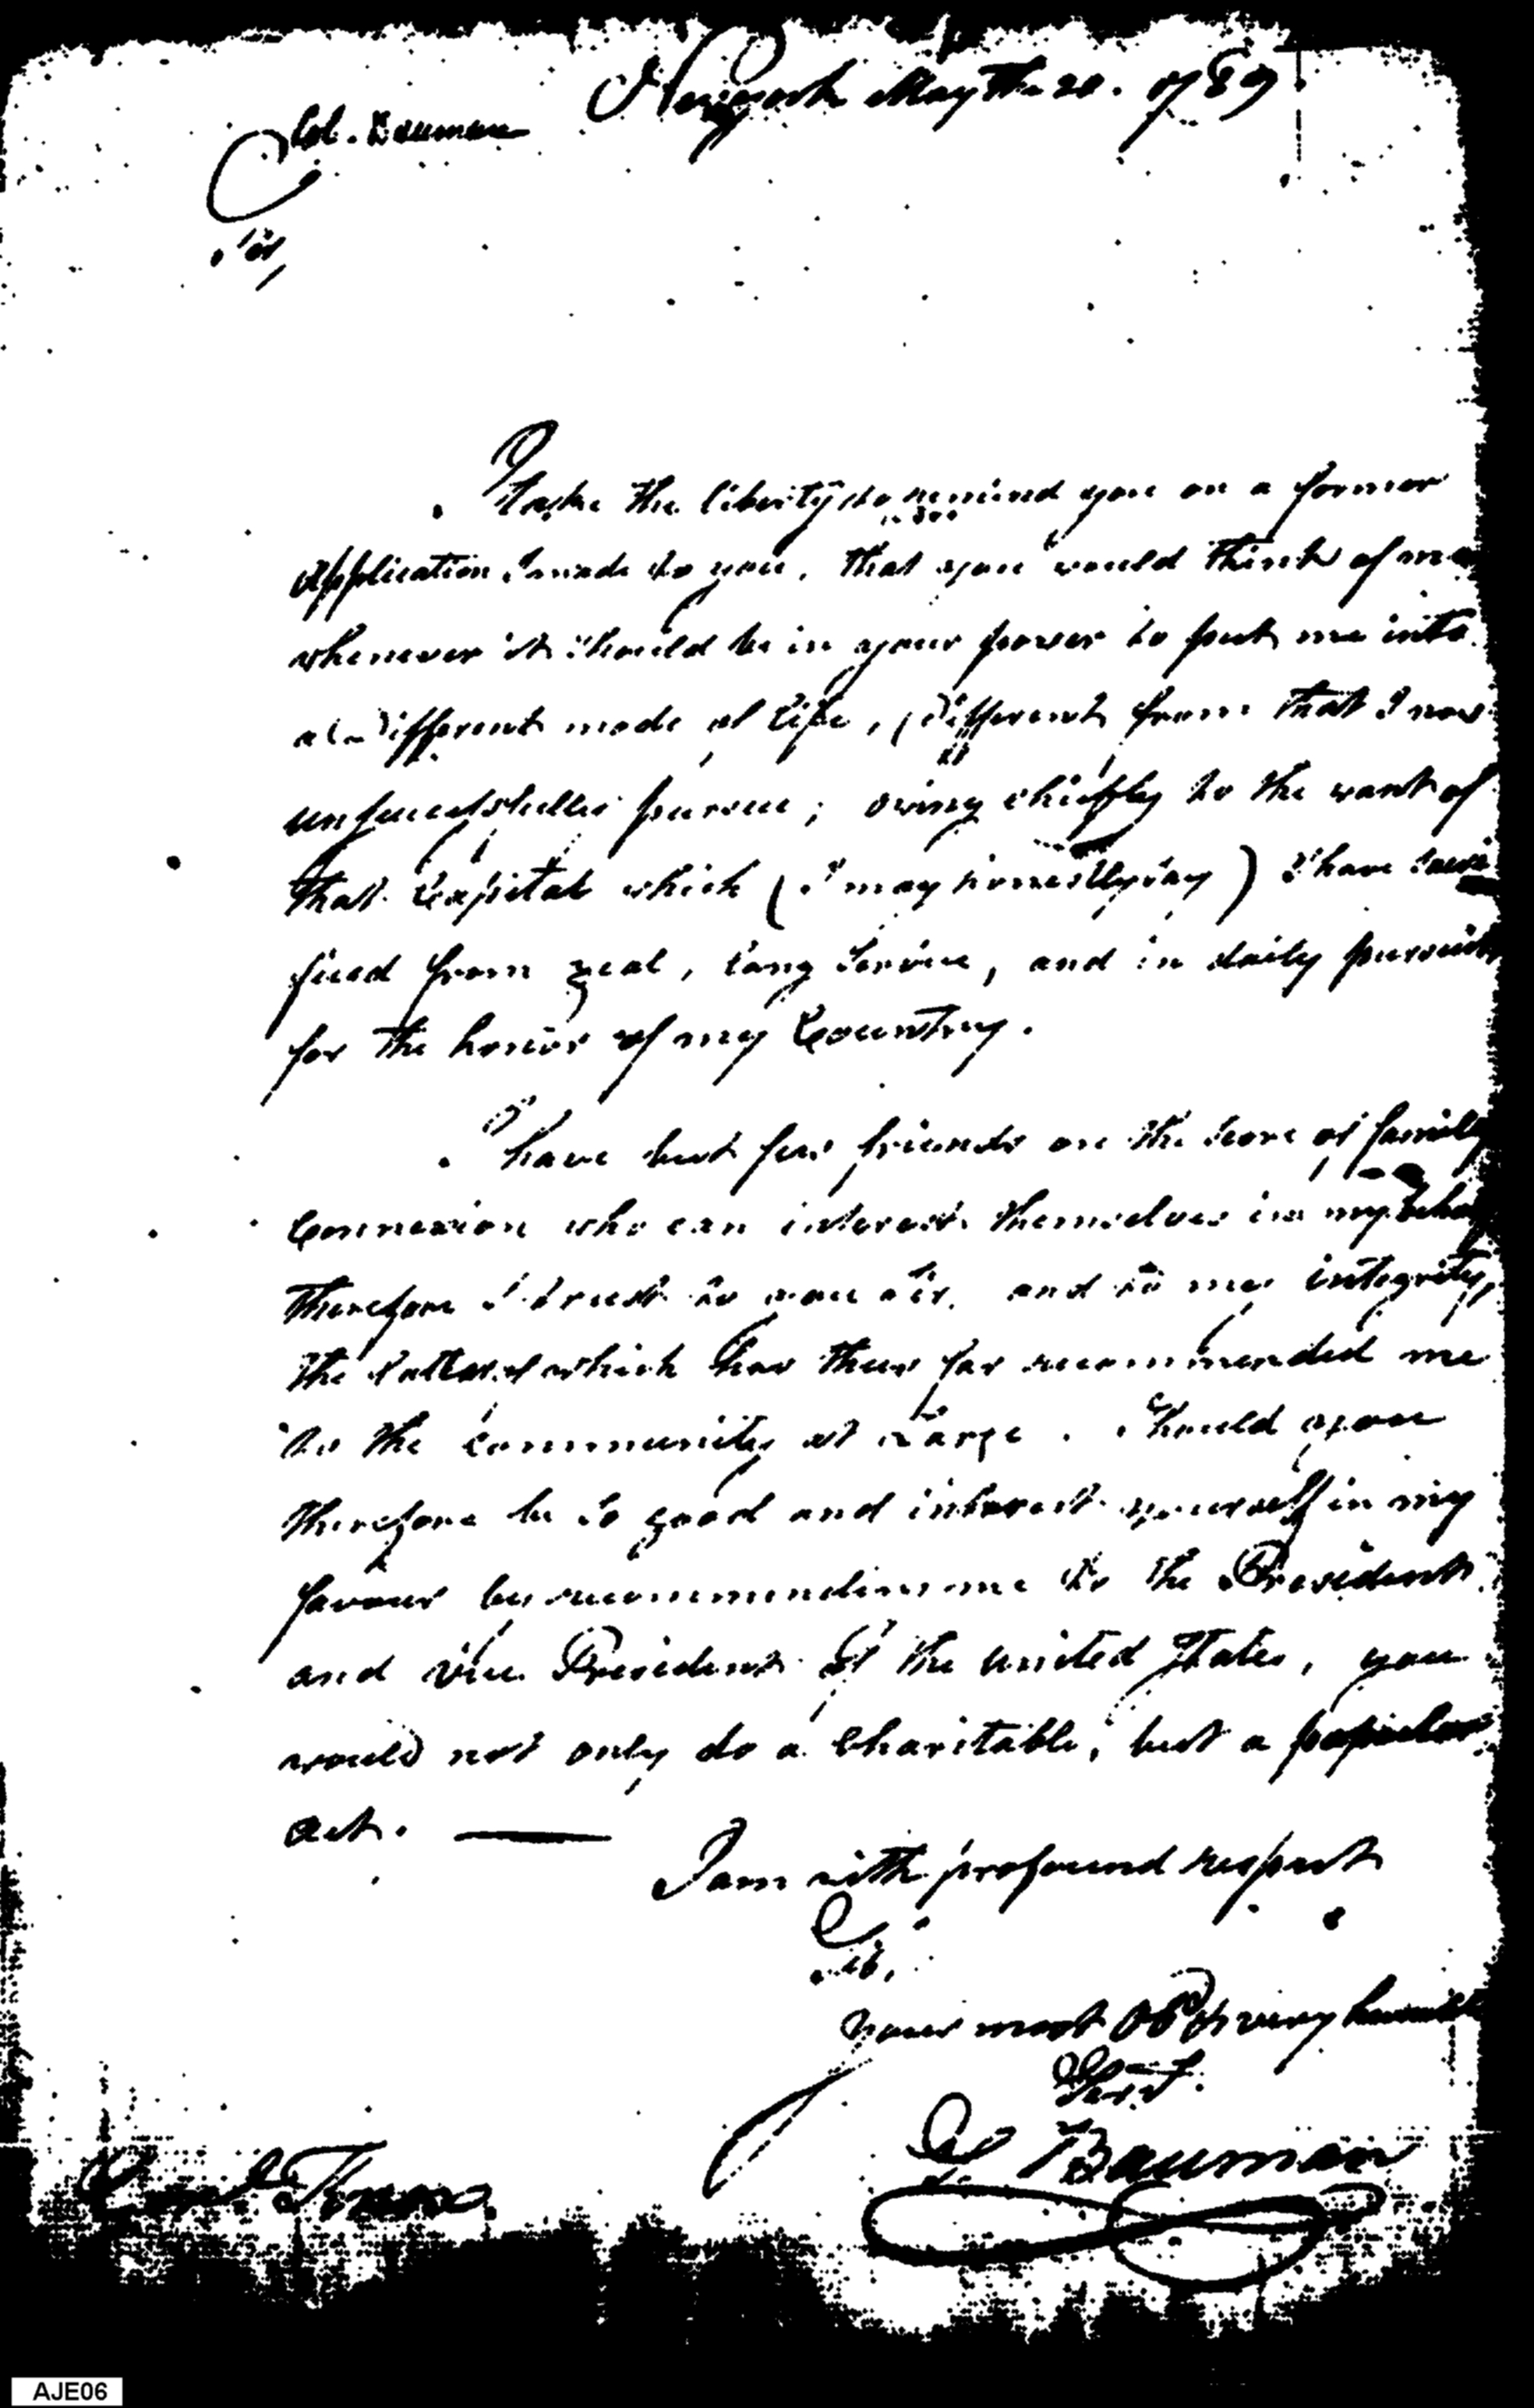 Newyork May the 20. 1789
Col. Bauman
Sir,
I take the liberty to remind you on a former
Application I made to you, that you would think of me
whenever it should be in your power to put me into
a Different mode of life, Different from that I now
unsuccessfullie pursue; owing chiefly to the want of
that Capital which (I may honestly say) I have sacri
ficed from zeal, long Service, and in daily pursuits
for the honor of my Country.
I have but few friends on the score of family
Connexion who can interest themselves in my
therefore I trust to you Sir, and to my integrity,
the latter of which has thus far recommended me
to the community at Large. Should you
therefore be so good and interest yourself in my
favour by recommending me to the President
and Vice President of the united States, you
would not only do a Charitable, but a popular
Act.
I am with profound respect
Sir,
your most Obt & very humble
Servt.
S Bauman
Genl Knox
AJE06